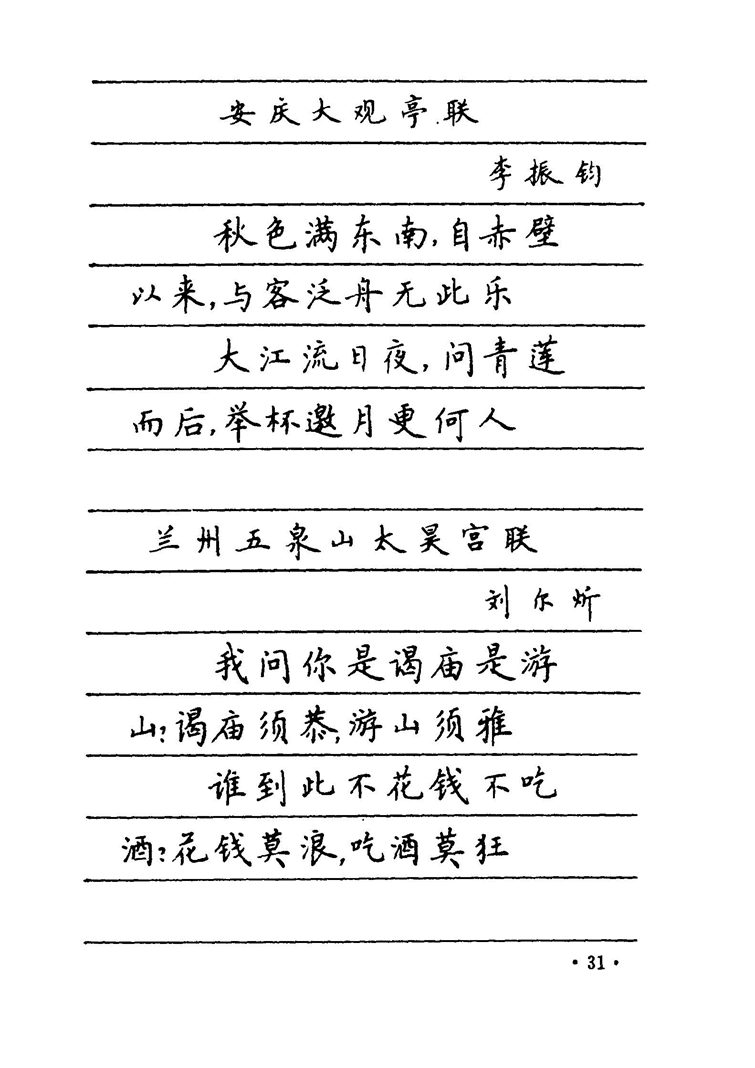 安庆大观亭联
李振钧
秋色满东南,自赤壁
以来,与客泛舟无此乐
大江流日夜,问青莲
而后,举杯邀月更何人
兰州五泉山太昊宫联
刘尔炘
我问你是谒庙是游
山?谒庙须恭,游山须雅
谁到此不花钱不吃
酒?花钱莫浪,吃酒莫狂
·31·